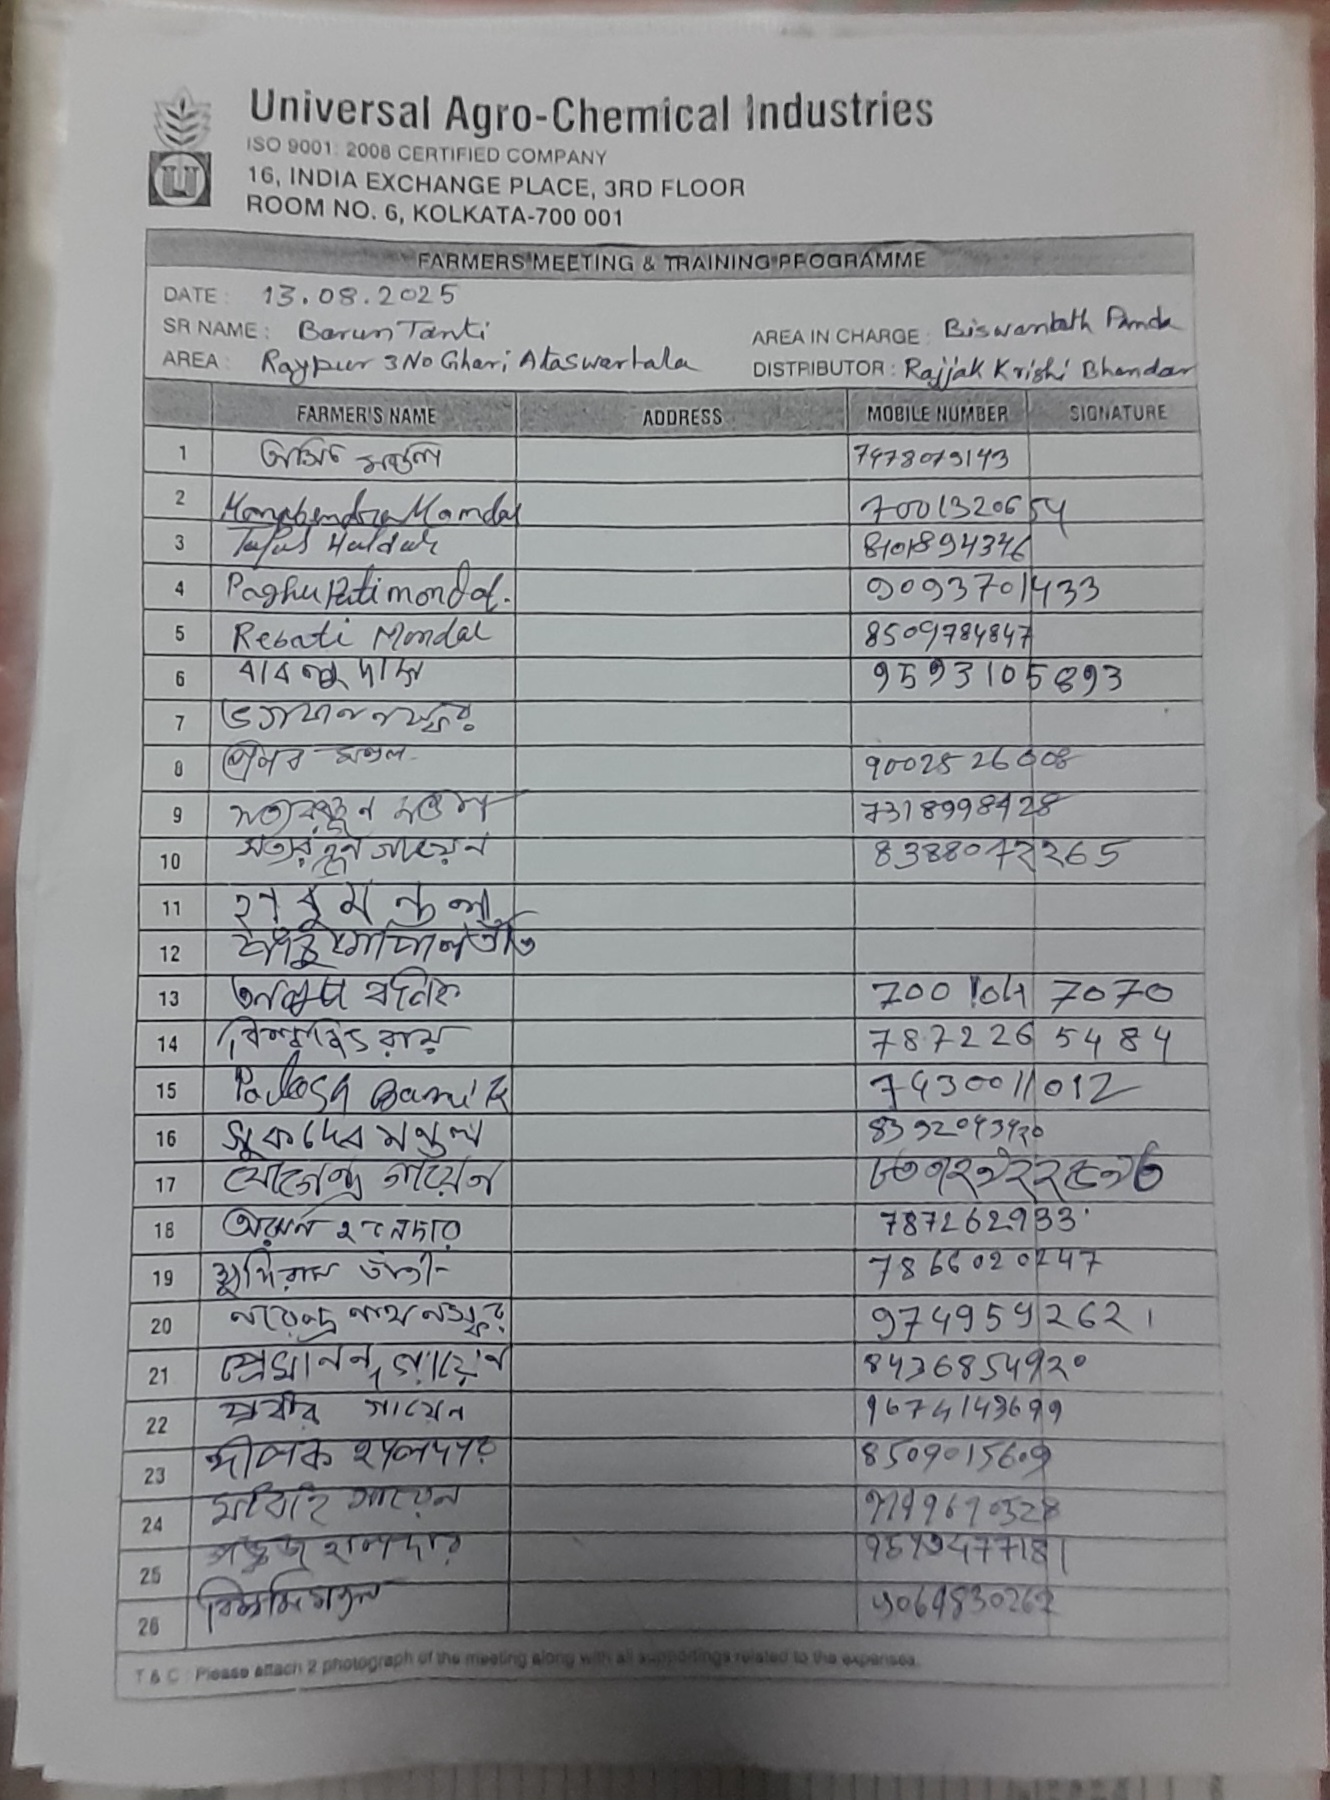 Universal Agro-Chemical Industries
ISO 9001: 2008 CERTIFIED COMPANY
16, INDIA EXCHANGE PLACE, 3RD FLOOR
ROOM NO. 6, KOLKATA-700 001
FARMERS MEETING & TRAINING PROGRAMME
DATE : 13.08.2025
SR NAME : Barun Tanti
AREA IN CHARGE : Biswanath Panda
AREA : Raypur 3 No Gheri, Ataswartala
DISTRIBUTOR : Rajjak Krishi Bhandar
FARMER'S NAME ADDRESS MOBILE NUMBER SIGNATURE
1 অমিত মণ্ডল 7478079143
2 Manabendra Mondal 7001320654
3 Tapas Haldar 8101894346
4 Raghu Pati mondal. 9093701433
5 Rebati Mondal 8509784847
6 বাবলু দাস 9593105893
7 নস্কর
8 মণ্ডল 9002526008
9 সত্যরঞ্জন মণ্ডল 7318998428
10 সত্যরঞ্জন গায়েন 8388072265
11 মন্ডল
12
13 7001047070
14 রায় 7872265484
15 Palash Bamik 7430011012
16 সুকদেব মন্ডল 8392043420
17 যোগেন্দ্র গায়েন
18 হালদার 787262933
19 তাঁতী 7866020247
20 নরেন্দ্র নাথ নস্কর 9749592621
21 প্রেমানন্দ গায়েন 8436854920
22 প্রবীর গায়েন 9674143699
23 দীপক হালদার 8509015609
24 গায়েন
25 পঙ্কজ হালদার
26 মণ্ডল
T & C : Please attach 2 photograph of the meeting along with all supportings related to the expenses.